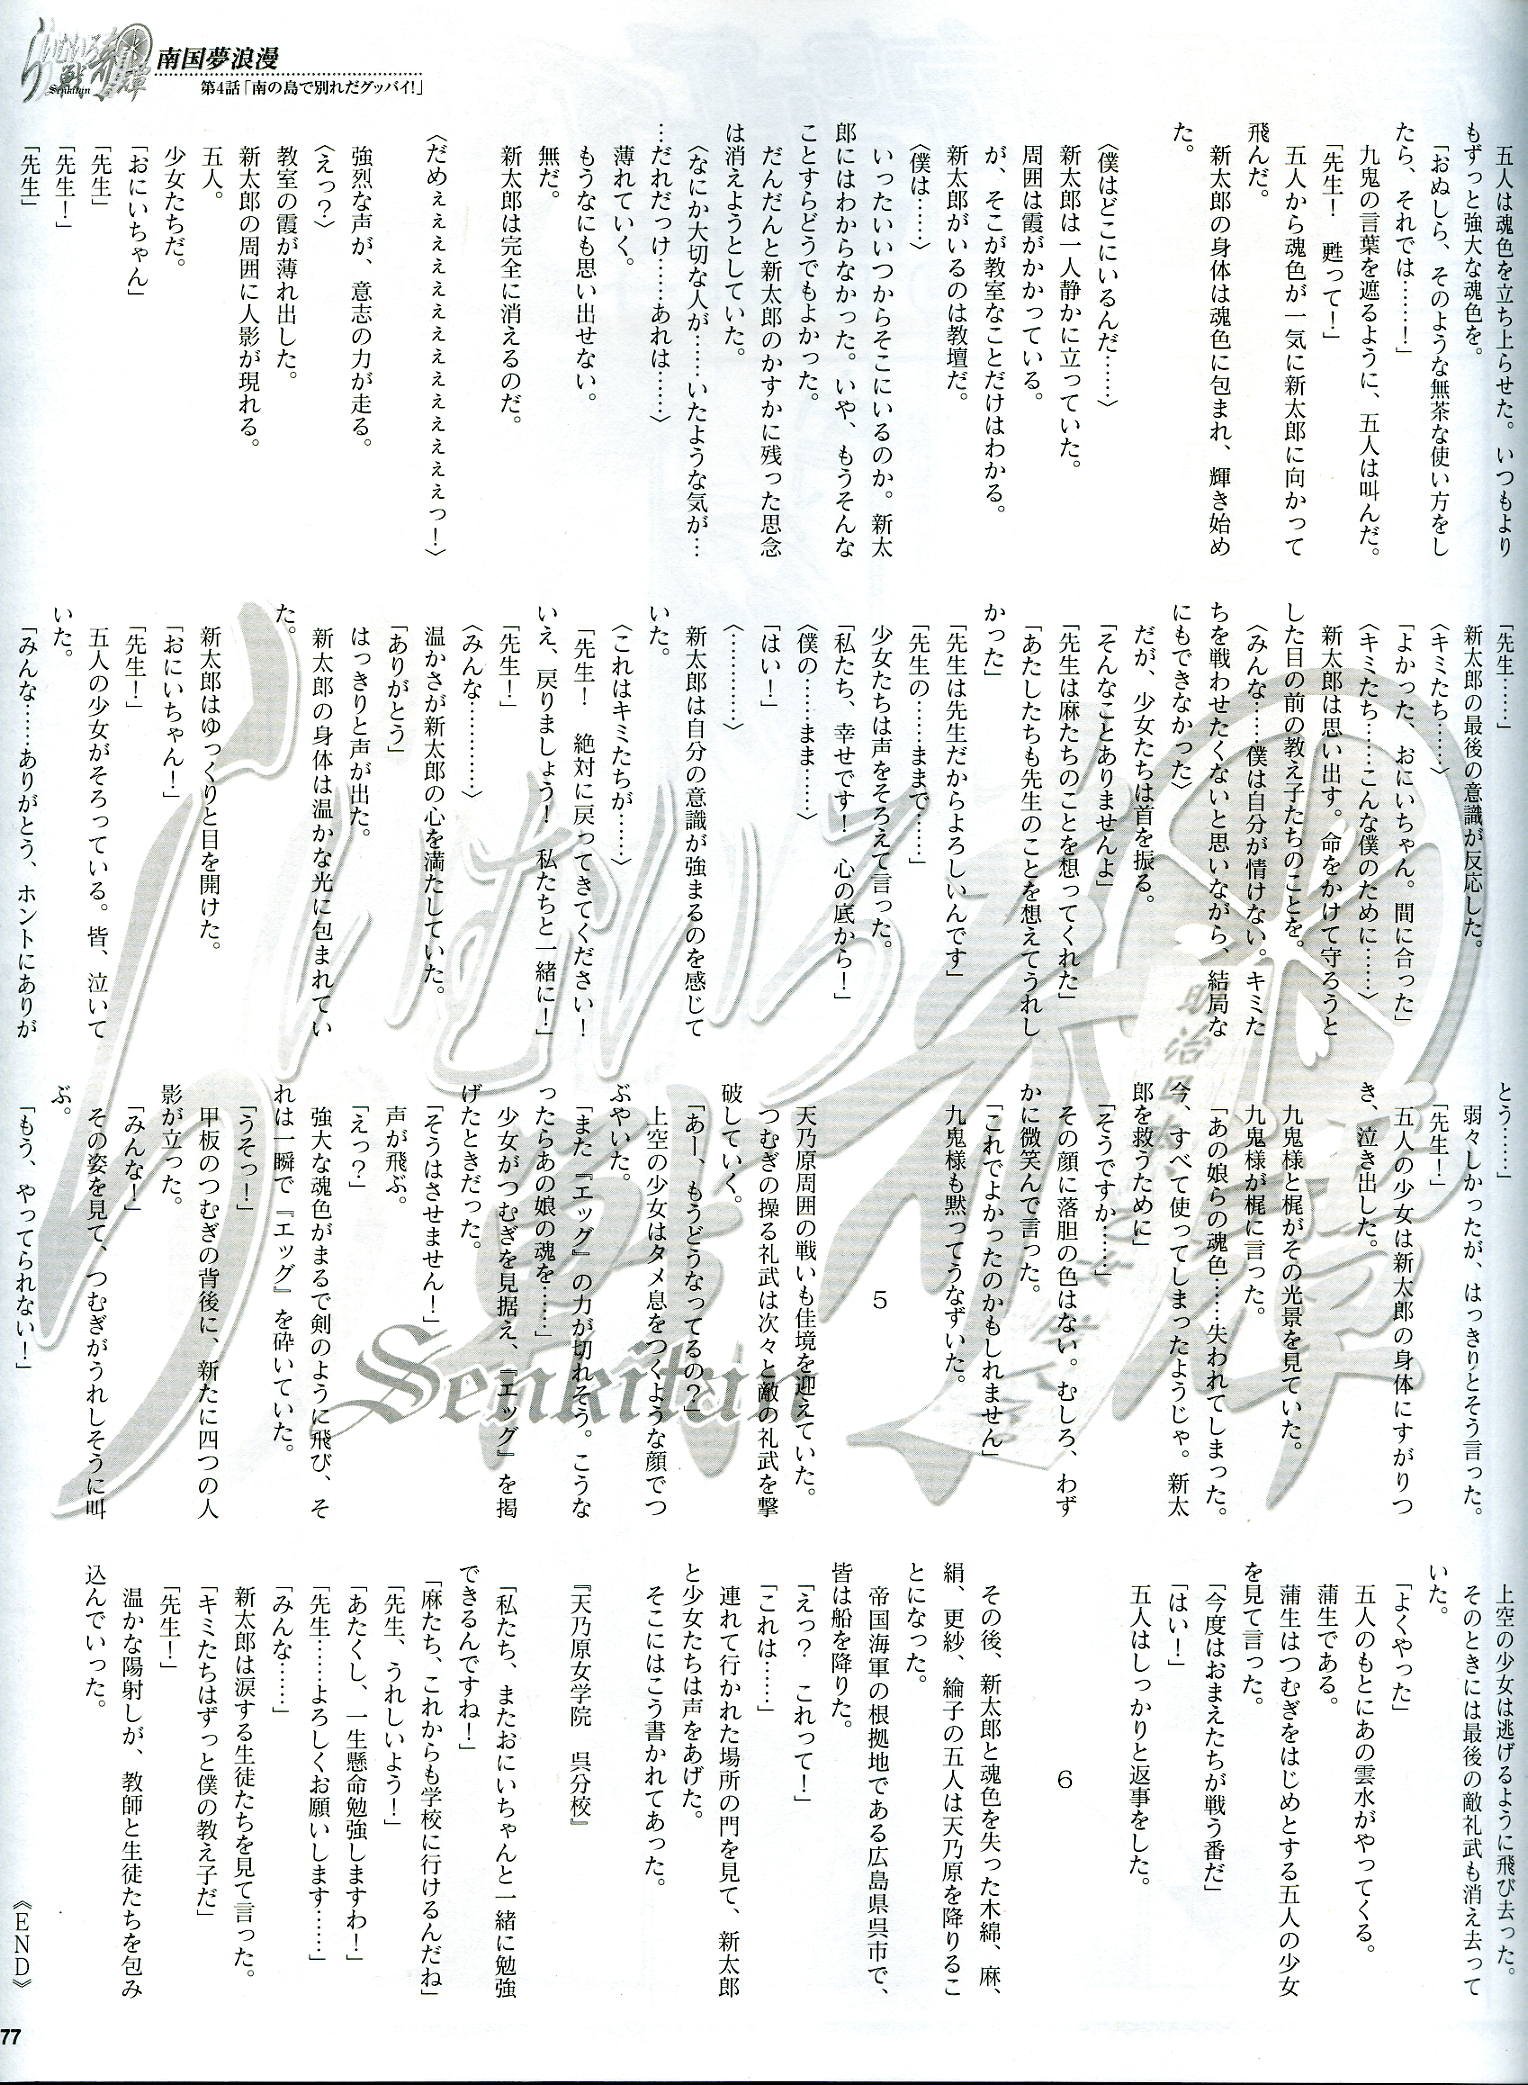 らいむいろ戦奇譚
Senkitan
南国夢浪漫
第4話「南の島で別れだグッバイ!」
五人は魂色を立ち上らせた。いつもより
もずっと強大な魂色を。
「おぬしら、そのような無茶な使い方をし
たら、それでは……!」
九鬼の言葉を遮るように、五人は叫んだ。
「先生! 甦って!」
五人から魂色が一気に新太郎に向かって
飛んだ。
新太郎の身体は魂色に包まれ、輝き始め
た。
〈僕はどこにいるんだ……〉
新太郎は一人静かに立っていた。
周囲は霞がかかっている。
が、そこが教室なことだけはわかる。
新太郎がいるのは教壇だ。
〈僕は……〉
いったいいつからそこにいるのか。新太
郎にはわからなかった。いや、もうそんな
ことすらどうでもよかった。
だんだんと新太郎のかすかに残った思念
は消えようとしていた。
〈なにか大切な人が……いたような気が…
…だれだっけ……あれは……〉
薄れていく。
もうなにも思い出せない。
無だ。
新太郎は完全に消えるのだ。
〈だめぇぇぇぇぇぇぇぇぇぇぇぇぇっ!〉
強烈な声が、意志の力が走る。
〈えっ?〉
教室の霞が薄れ出した。
新太郎の周囲に人影が現れる。
五人。
少女たちだ。
「おにいちゃん」
「先生」
「先生!」
「先生」
「先生……」
新太郎の最後の意識が反応した。
〈キミたち……〉
「よかった、おにいちゃん。間に合った」
〈キミたち……こんな僕のために……〉
新太郎は思い出す。命をかけて守ろうと
した目の前の教え子たちのことを。
〈みんな……僕は自分が情けない。キミた
ちを戦わせたくないと思いながら、結局な
にもできなかった〉
だが、少女たちは首を振る。
「そんなことありませんよ」
「先生は麻たちのことを想ってくれた」
「あたしたちも先生のことを想えてうれし
かった」
「先生は先生だからよろしいんです」
「先生の……ままで……」
少女たちは声をそろえて言った。
「私たち、幸せです! 心の底から!」
〈僕の……まま……〉
「はい!」
〈…………〉
新太郎は自分の意識が強まるのを感じて
いた。
〈これはキミたちが……〉
「先生! 絶対に戻ってきてください!
いえ、戻りましょう! 私たちと一緒に!」
「先生!」
〈みんな…………〉
温かさが新太郎の心を満たしていた。
「ありがとう」
はっきりと声が出た。
新太郎の身体は温かな光に包まれてい
た。
新太郎はゆっくりと目を開けた。
「おにいちゃん!」
「先生!」
五人の少女がそろっている。皆、泣いて
いた。
「みんな……ありがとう、ホントにありが
とう……」
弱々しかったが、はっきりとそう言った。
「先生!」
五人の少女は新太郎の身体にすがりつ
き、泣き出した。
九鬼様と梶がその光景を見ていた。
九鬼様が梶に言った。
「あの娘らの魂色……失われてしまった。
今、すべて使ってしまったようじゃ。新太
郎を救うために」
「そうですか……」
その顔に落胆の色はない。むしろ、わず
かに微笑んで言った。
「これでよかったのかもしれません」
九鬼様も黙ってうなずいた。
5
天乃原周囲の戦いも佳境を迎えていた。
つむぎの操る礼武は次々と敵の礼武を撃
破していく。
「あー、もうどうなってるの?」
上空の少女はタメ息をつくような顔でつ
ぶやいた。
「また『エッグ』の力が切れそう。こうな
ったらあの娘の魂を……」
少女がつむぎを見据え、『エッグ』を掲
げたときだった。
「そうはさせません!」
声が飛ぶ。
「えっ?」
強大な魂色がまるで剣のように飛び、そ
れは一瞬で『エッグ』を砕いていた。
「うそっ!」
甲板のつむぎの背後に、新たに四つの人
影が立った。
「みんな!」
その姿を見て、つむぎがうれしそうに叫
ぶ。
「もう、やってられない!」
上空の少女は逃げるように飛び去った。
そのときには最後の敵礼武も消え去って
いた。
「よくやった」
五人のもとにあの雲水がやってくる。
蒲生である。
蒲生はつむぎをはじめとする五人の少女
を見て言った。
「今度はおまえたちが戦う番だ」
「はい!」
五人はしっかりと返事をした。
6
その後、新太郎と魂色を失った木綿、麻、
絹、更紗、綸子の五人は天乃原を降りるこ
とになった。
帝国海軍の根拠地である広島県呉市で、
皆は船を降りた。
「えっ? これって!」
「これは……」
連れて行かれた場所の門を見て、新太郎
と少女たちは声をあげた。
そこにはこう書かれてあった。
『天乃原女学院 呉分校』
「私たち、またおにいちゃんと一緒に勉強
できるんですね!」
「麻たち、これからも学校に行けるんだね」
「先生、うれしいよう!」
「あたくし、一生懸命勉強しますわ!」
「先生……よろしくお願いします……」
「みんな……」
新太郎は涙する生徒たちを見て言った。
「キミたちはずっと僕の教え子だ」
「先生!」
温かな陽射しが、教師と生徒たちを包み
込んでいった。
《END》
77